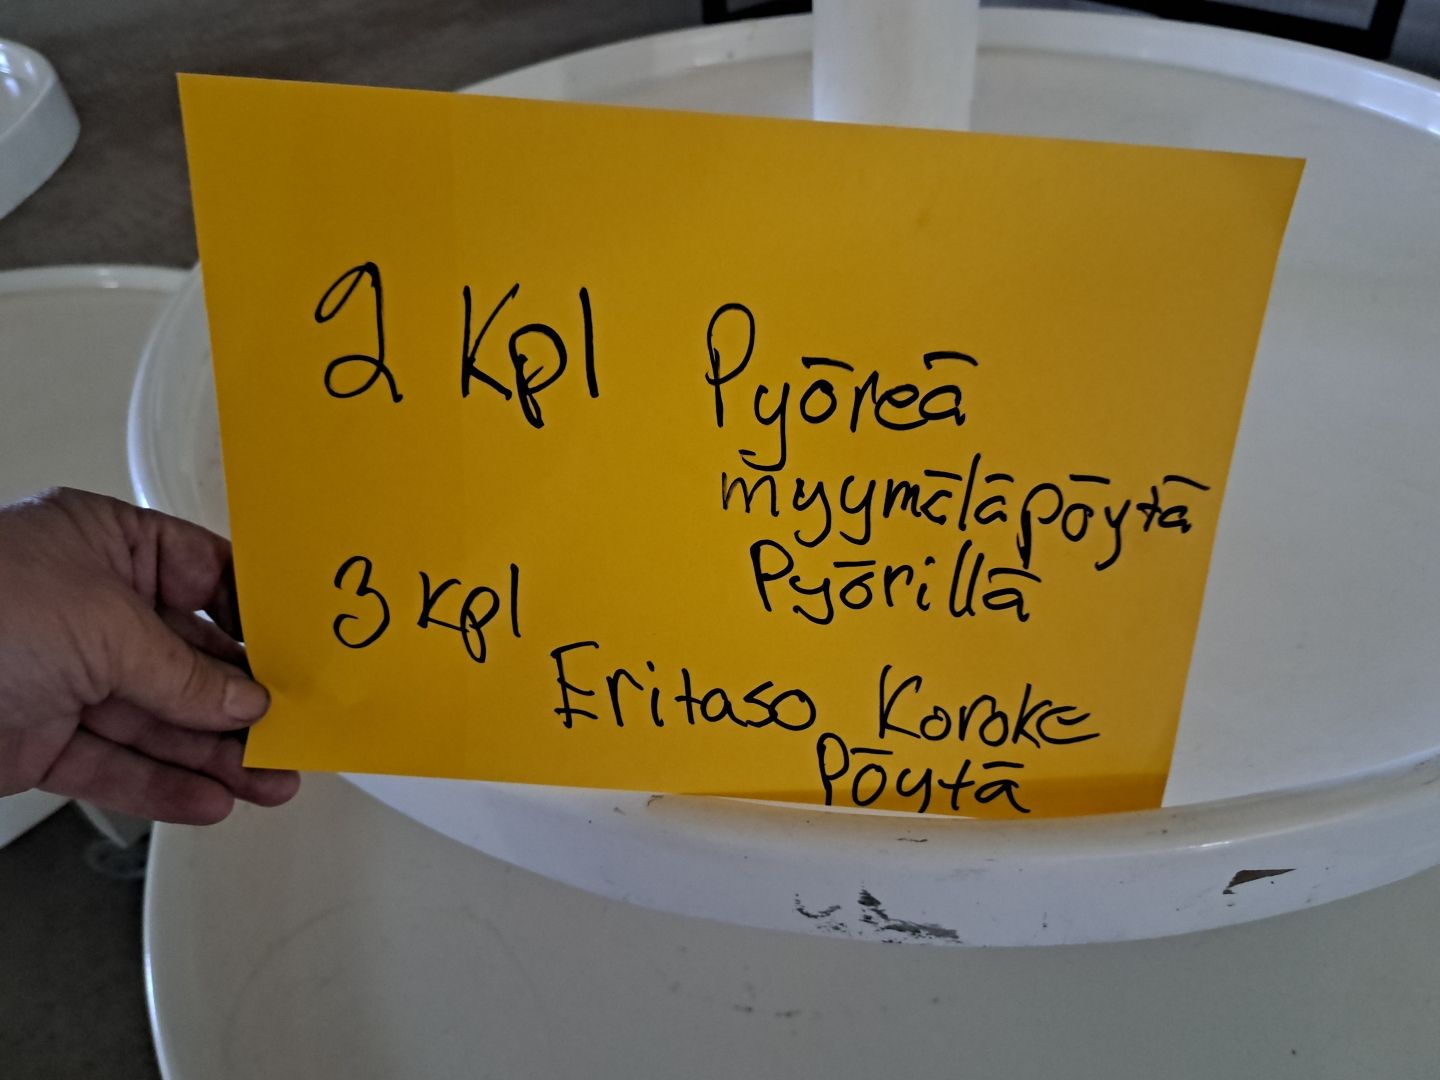 2 Kpl Pyöreä
myymäläpöytä
Pyörillä
3 kpl
Eritaso Koroke
Pöytä